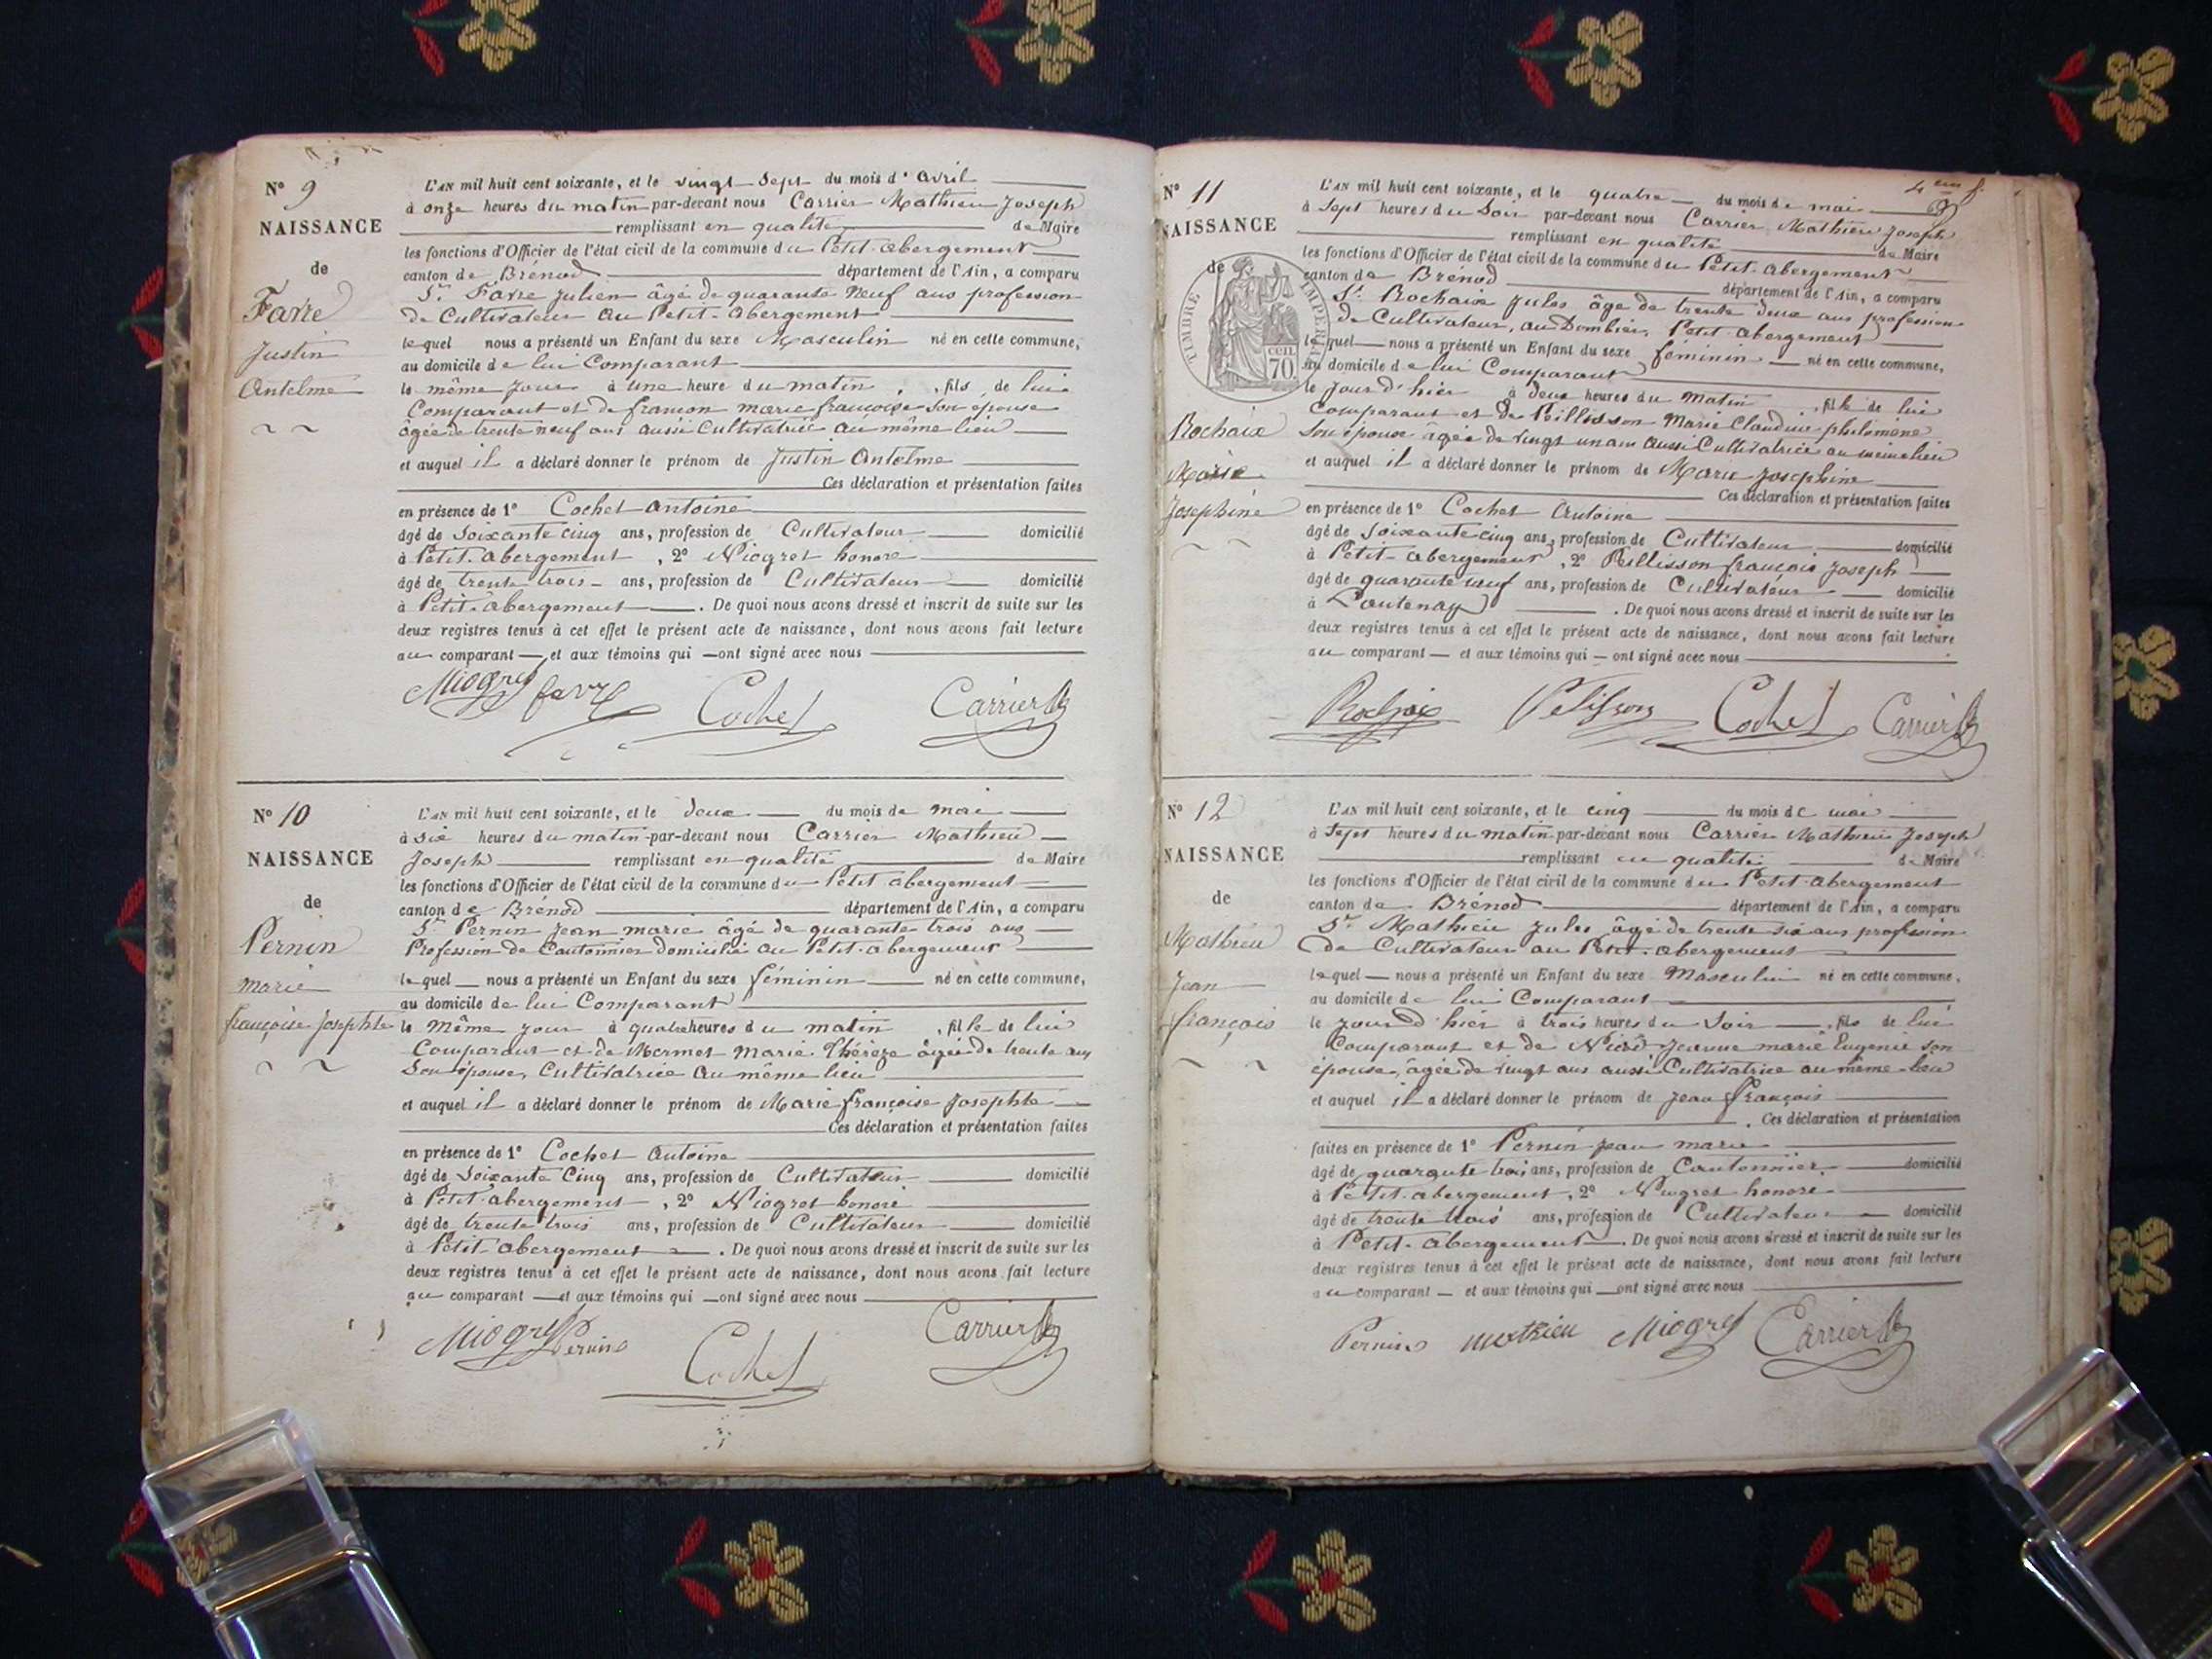 N° 9
NAISSANCE
de
Favre
Justin
Antelme
L'AN mil huit cent soixante, et le vingt-sept du mois d'avril
à onze heures du matin par-devant nous Carrier Mathieu Joseph
remplissant en qualité de Maire
les fonctions d'Officier de l'état civil de la commune du Petit-abergement
canton de Brénod département de l'Ain, a comparu
Sr. Favre Julien âgé de quarante neuf ans profession
de Cultivateur au Petit-abergement
lequel nous a présenté un Enfant du sexe Masculin né en cette commune,
au domicile de lui Comparant
le même jour à une heure du matin, fils de lui
Comparant et de françon marie françoise son épouse
âgée de trente neuf ans aussi Cultivatrice au même lieu
et auquel il a déclaré donner le prénom de Justin Antelme
Ces déclaration et présentation faites
en présence de 1° Cochet antoine
âgé de soixante cinq ans, profession de Cultivateur domicilié
à Petit-abergement, 2° Niogret honoré
âgé de trente trois ans, profession de Cultivateur domicilié
à Petit-abergement. De quoi nous avons dressé et inscrit de suite sur les
deux registres tenus à cet effet le présent acte de naissance, dont nous avons fait lecture
au comparant et aux témoins qui ont signé avec nous
Niogret favre Cochet Carrier
N° 10
NAISSANCE
de
Pernin
marie
françoise Josephte
L'AN mil huit cent soixante, et le deux du mois de mai
à six heures du matin par-devant nous Carrier Mathieu
Joseph remplissant en qualité de Maire
les fonctions d'Officier de l'état civil de la commune du Petit abergement
canton de Brénod département de l'Ain, a comparu
Sr. Pernin Jean marie âgé de quarante trois ans
Profession de Cantonnier domicilié au Petit-abergement
lequel nous a présenté un Enfant du sexe féminin né en cette commune,
au domicile de lui Comparant
le même jour à quatre heures du matin, fille de lui
Comparant et de Mermet Marie Thérèse âgée de trente ans
Son épouse, Cultivatrice au même lieu
et auquel il a déclaré donner le prénom de Marie françoise Josephte
Ces déclaration et présentation faites
en présence de 1° Cochet antoine
âgé de soixante cinq ans, profession de Cultivateur domicilié
à Petit abergement, 2° Niogret honoré
âgé de trente trois ans, profession de Cultivateur domicilié
à Petit abergement. De quoi nous avons dressé et inscrit de suite sur les
deux registres tenus à cet effet le présent acte de naissance, dont nous avons fait lecture
au comparant et aux témoins qui ont signé avec nous
Niogret Pernin Cochet Carrier
N° 11
NAISSANCE
de
TIMBRE IMPERIAL
cen. 70
Rochaix
Marie
Josephine
L'AN mil huit cent soixante, et le quatre du mois de mai
à sept heures du soir par-devant nous Carrier Mathieu Joseph
remplissant en qualité de Maire
les fonctions d'Officier de l'état civil de la commune du Petit-abergement
canton de Brénod département de l'Ain, a comparu
Sr. Rochaix Jules âgé de trente deux ans profession
de Cultivateur, au Dombier, Petit abergement
lequel nous a présenté un Enfant du sexe féminin né en cette commune,
au domicile de lui Comparant
le jour d'hier à deux heures du matin, fille de lui
Comparant et de Pellisson Marie Claudine philomène
son épouse âgée de vingt un ans aussi Cultivatrice au même lieu
et auquel il a déclaré donner le prénom de Marie Josephine
Ces déclaration et présentation faites
en présence de 1° Cochet Antoine
âgé de soixante cinq ans, profession de Cultivateur domicilié
à Petit-abergement, 2° Pellisson françois Joseph
âgé de quarante neuf ans, profession de Cultivateur domicilié
à Lantenay. De quoi nous avons dressé et inscrit de suite sur les
deux registres tenus à cet effet le présent acte de naissance, dont nous avons fait lecture
au comparant et aux témoins qui ont signé avec nous
Rochaix Pelisson Cochet Carrier
N° 12
NAISSANCE
de
Mathieu
Jean
françois
L'AN mil huit cent soixante, et le cinq du mois de mai
à sept heures du matin par-devant nous Carrier Mathieu Joseph
remplissant en qualité de Maire
les fonctions d'Officier de l'état civil de la commune du Petit-abergement
canton de Brénod département de l'Ain, a comparu
Sr. Mathieu Jules âgé de trente six ans profession
de Cultivateur au Petit-abergement
lequel nous a présenté un Enfant du sexe Masculin né en cette commune,
au domicile de lui Comparant
le jour d'hier à trois heures du soir, fils de lui
Comparant et de Jeanne marie Eugénie son
épouse, âgée de vingt ans aussi Cultivatrice au même lieu
et auquel il a déclaré donner le prénom de Jean françois
Ces déclaration et présentation
faites en présence de 1° Pernin Jean marie
âgé de quarante trois ans, profession de Cantonnier domicilié
à Petit-abergement, 2° Niogret honoré
âgé de trente trois ans, profession de Cultivateur domicilié
à Petit-abergement. De quoi nous avons dressé et inscrit de suite sur les
deux registres tenus à cet effet le présent acte de naissance, dont nous avons fait lecture
au comparant et aux témoins qui ont signé avec nous
Pernin mathieu Niogret Carrier